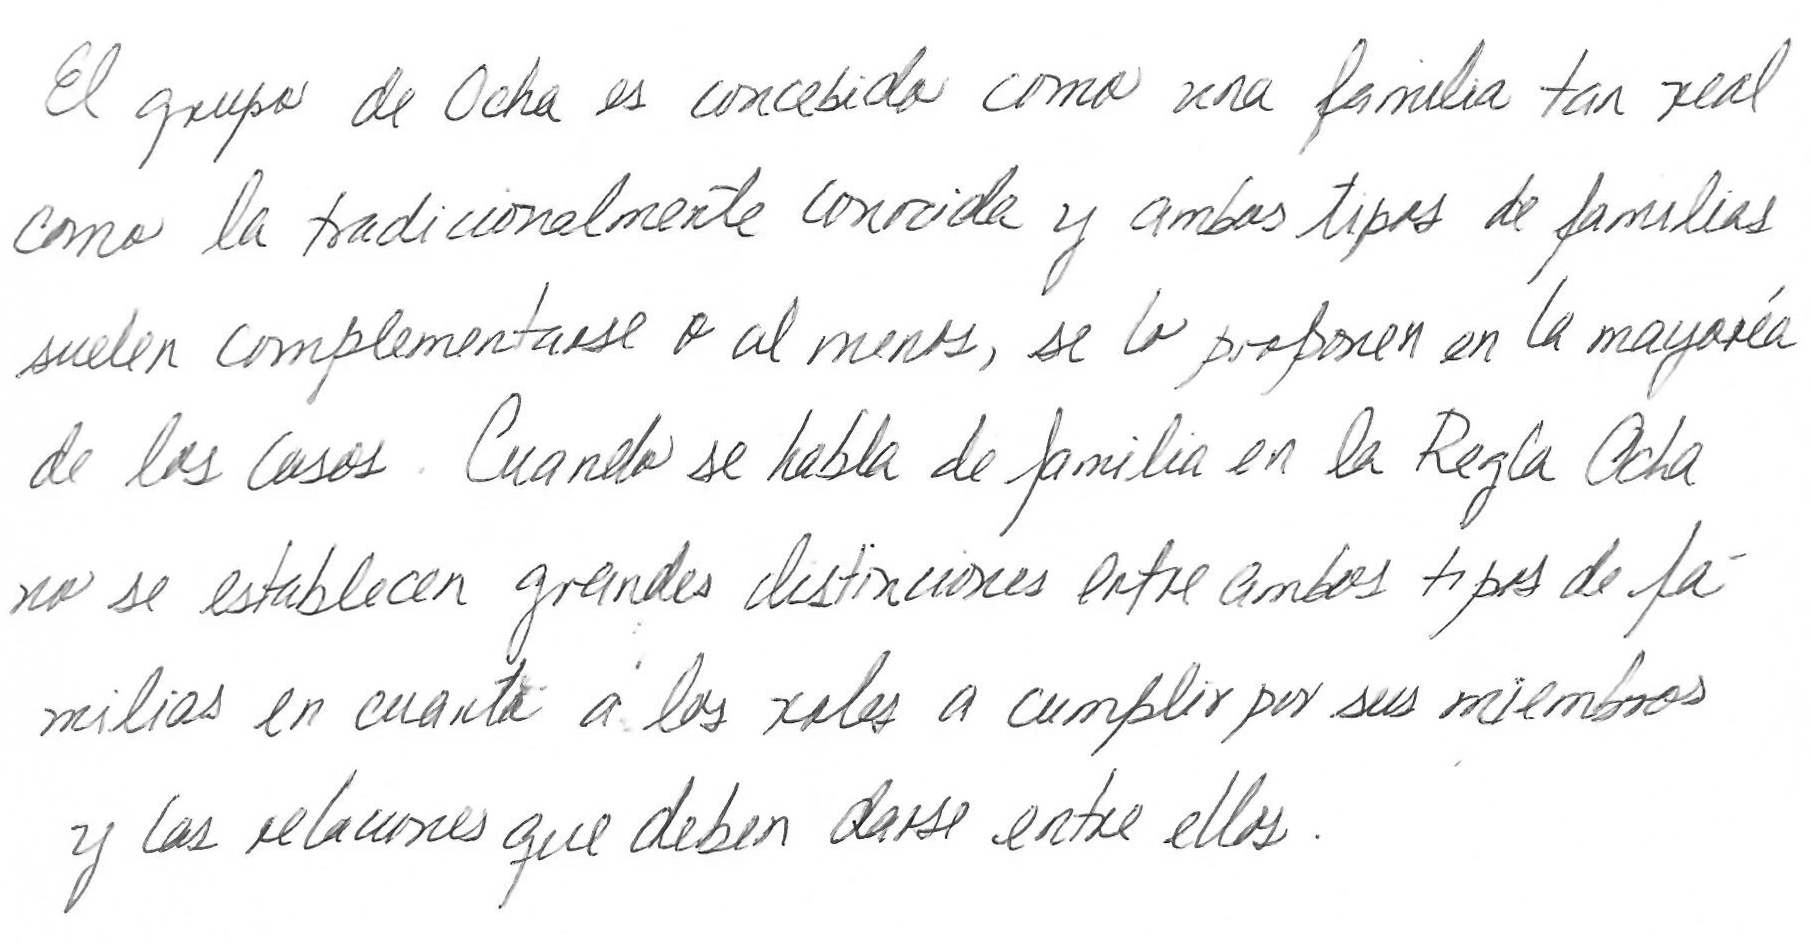 El grupo de Ocha es concebido como una familia tan real
como la tradicionalmente conocida y ambos tipos de familias
suelen complementarse o al menos, se lo proponen en la mayoría
de los casos. Cuando se habla de familia en la Regla Ocha
no se establecen grandes distinciones entre ambos tipos de fa-
milias en cuanto a los roles a cumplir por sus miembros
y las relaciones que deben darse entre ellos.